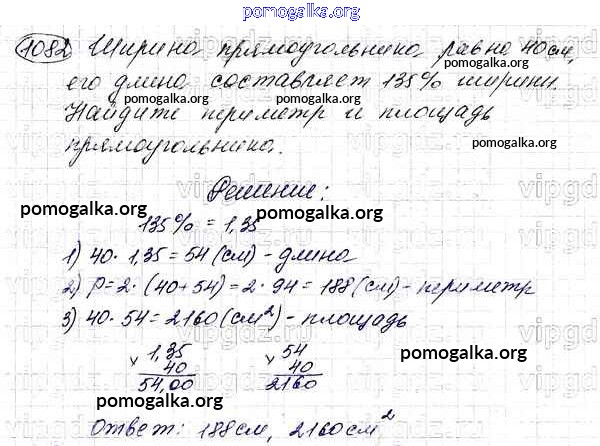 pomogalka.org
1082 Ширина прямоугольника равна 40 см,
его длина составляет 135% ширины.
Найдите периметр и площадь
прямоугольника.
pomogalka.org
pomogalka.org
Решение:
pomogalka.org
pomogalka.org
135% = 1,35
1) 40 · 1,35 = 54 (см) - длина
2) P = 2 · (40 + 54) = 2 · 94 = 188 (см) - периметр
3) 40 · 54 = 2160 (см²) - площадь
× 1,35 × 54
40 40
54,00 2160
pomogalka.org
pomogalka.org
Ответ: 188 см, 2160 см²
pomogalka.org